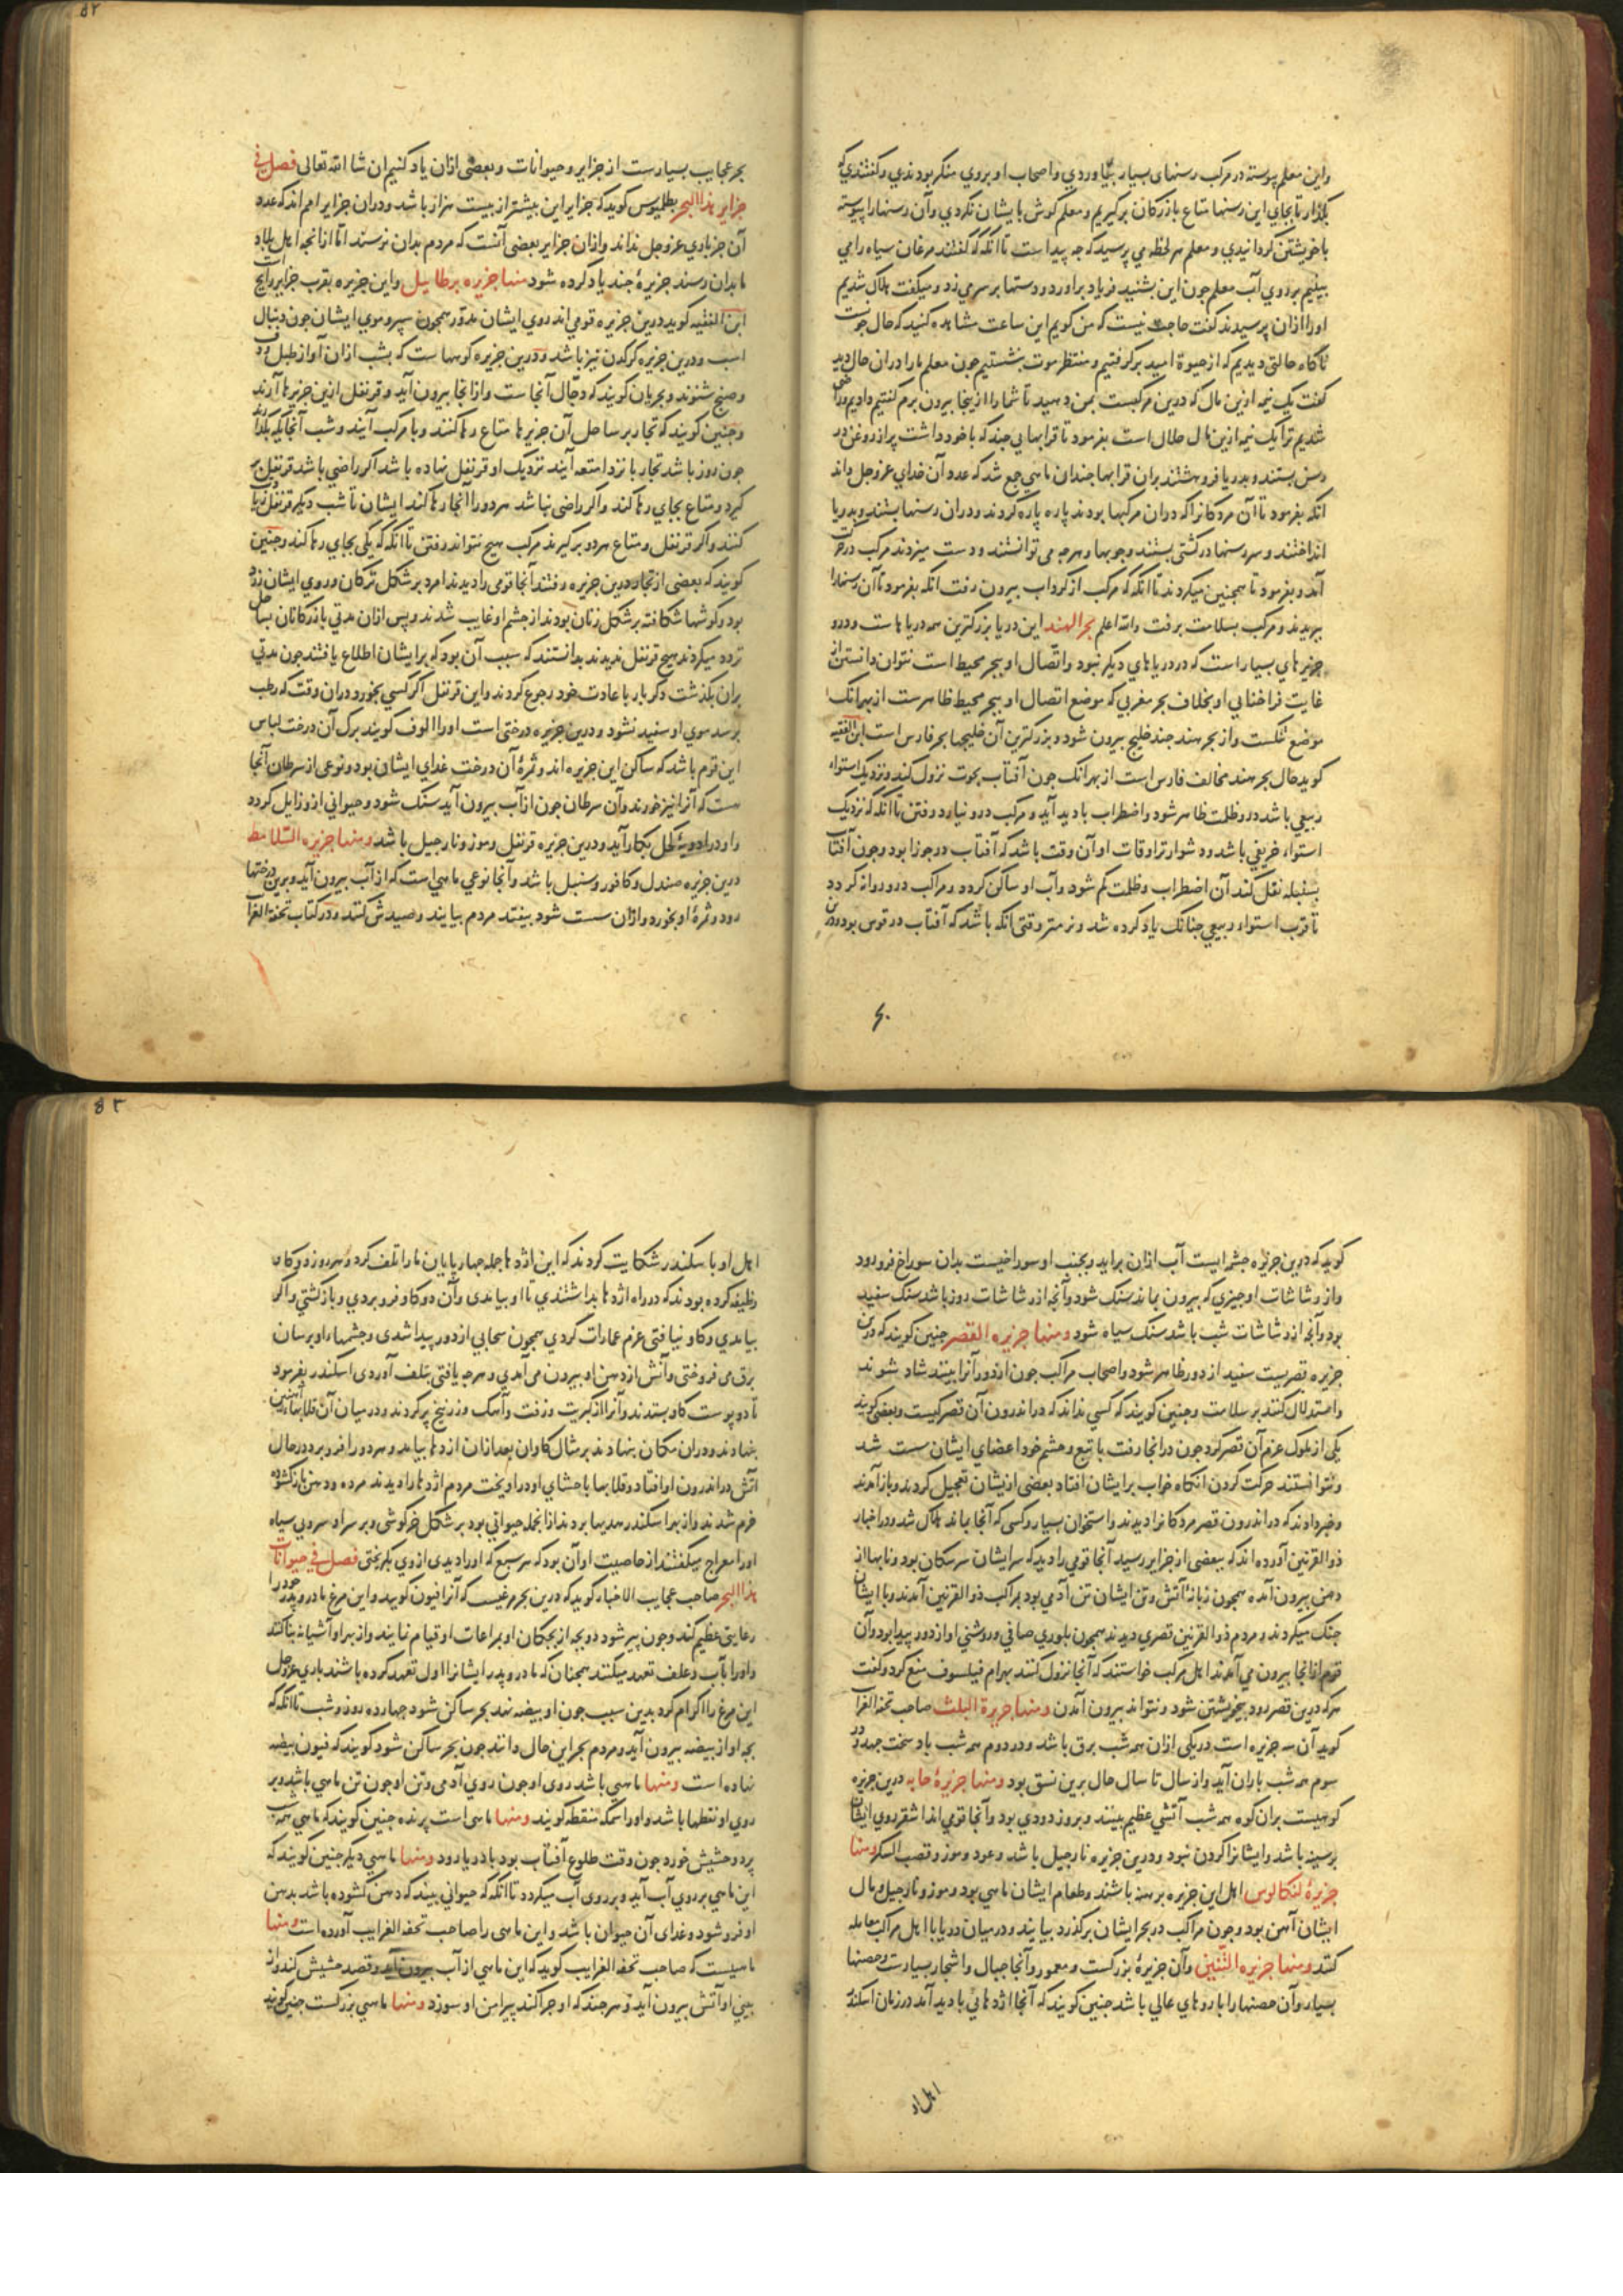 واین معلم پیوسته در مرکب رسنهای بسیار بیاوردی واصحاب او بروي منکر بودندي وکفتندي که
بکذار تا بجاي این رسنها متاع بازرکانان برکیریم ومعلم کوش بایشان نکردي وآن رسنها را پیوسته
با خویشتن کردانیدي ومعلم هر لحظه می پرسید که چه پیداست تا انکه که کفتند مرغان سیاه را می
بینیم بر روي آب معلم چون این بشنید فریاد براورد ودستها بر سر می زد ومیکفت هلاک شدیم
اورا ازان پرسیدند کفت حاجت نیست که من کویم این ساعت مشاهده کنید که حال چونست
ناکاه حالتی دیدیم که از حیوة امید برکرفتیم ومنتظر موت بنشستیم چون معلم ما را دران حال دید
کفت یک نیمه ازین مال که درین مرکبست بمن دهید تا شما را ازینجا بیرون برم کفتیم دادیم وراضی
شدیم ترا یک نیمه ازین مال حلال است بفرمود تا قرابهایی چند که با خود داشت پر از روغن در
رسن بستند وبدریا فرو هشتند بران قرابها چندان ماهی جمع شد که عدد آن خداي عزوجل داند
انکه بفرمود تا آن مردکانرا که دران مرکبها بودند پاره پاره کردند ودران رسنها بستند وبدریا
انداختند وسر رسنها در کشتی بستند وچوبها وهرچه می توانستند ودست میزدند مرکب در حرکت
آمد وبفرمود تا همچنین میکردند تا انکه که مرکب از کرداب بیرون رفت انکه بفرمود تا آن رسنها را
ببریدند ومرکب بسلامت برفت والله اعلم بحر الهند این دریا بزرکترین همه دریاهاست ودرو
جزیرهاي بسیار است که در دریاهاي دیکر نبود واتصال او ببحر محیط است نتوان دانستن از
غایت فراخنایي او بخلاف بحر مغربي که موضع اتصال او ببحر محیط ظاهرست از بهر انک
موضع تنکست واز بحر هند چند خلیج بیرون شود وبزرکترین آن خلیجها بحر فارس است ابن الفقیه
کوید حال بحر هند مخالف فارس است از بهر انک چون آفتاب بحوت نزول کند ونزدیک استواء
ربیعي باشد درو ظلمت ظاهر شود واضطراب بادید آید ومرکب درو نیارد رفتن تا انکه که نزدیک
استواء خریفي باشد ودشوارتر اوقات او آن وقت باشد که آفتاب در جوزا بود وچون آفتاب
بسنبله نقل کند آن اضطراب وظلمت کم شود وآب او ساکن کردد ومراکب درو روانه کردد
تا قرب استواء ربیعي چنانک یاد کرده شد ونرمتر وقتی انکه باشد که آفتاب در قوس بود ودرین
بحر عجایب بسیارست از جزایر وحیوانات وبعضی ازان یاد کنیم ان شا الله تعالی فصل في
جزایر هذا البحر بطلیوس کوید که جزایر این بیشتر از بیست هزار باشد ودران جزایر امم اند که عدد
آن جز باري عزوجل نداند وازان جزایر بعضی آنست که مردم بدان نرسند اما ازانچه اهل بلاد
ما بدان رسند جزیرۀ چند یاد کرده شود منها جزیره برطاییل واین جزیره بقرب جزایر رانج است
ابن الفقیه کوید درین جزیره قومي اند روي ایشان مدور همچون سپر وموي ایشان چون دنبال
اسب ودرین جزیره کرکدن نیز باشد ودرین جزیره کوهها ست که بشب ازان آواز طبل ودف
وصنج شنوند وبحریان کویند که دجال آنجا ست وازانجا بیرون آید وقرنفل ازین جزیرها آرند
وچنین کویند که تجار بر ساحل آن جزیرها متاع رها کنند وبا مرکب آیند وشب آنجا یکه بکذارند
چون روز باشد تجار بازند امتعه آیند نزدیک او قرنفل نهاده باشد اکر راضي باشد قرنفل بر
کیرد ومتاع بجاي رها کند واکر راضی نباشد هردو را آنجا رها کند ایشان تا شب دیکر قرنفل زیادت
کنند واکر قرنفل ومتاع هردو برکیرند مرکب هیچ نتواند رفتن تا انکه که یکی بجاي رها کند وچنین
کویند که بعضی از تجار درین جزیره رفتند آنجا قومی را دیدند امرد بر شکل ترکان وروي ایشان زرد
بود وکوشها شکافته بر شکل زنان بودند از چشم او غایب شدند وپس ازان مدتي بازرکانان بساحل
تردد میکردند هیچ قرنفل ندیدند بدانستند که سبب آن بود که بر ایشان اطلاع یافتند چون مدتي
بران بکذشت دکر بار با عادت خود رجوع کردند واین قرنفل اکر کسی بخورد دران وقت که رطب
بود موي او سفید نشود ودرین جزیره درختي است اورا الوف کویند برک آن درخت لباس
این قوم باشد که ساکن این جزیره اند وثمرۀ آن درخت غداي ایشان بود ونوعی از سرطان آنجا
هست که آنرا نیز خورند وآن سرطان چون از آب بیرون آید سنک شود وحیواني ازو زایل کردد
واو در ادویۀ کحل بکار آید ودرین جزیره قرنفل وموز ونارجیل باشد ومنها جزیره السلامط
درین جزیره صندل وکافور وسنبل باشد وآنجا نوعي ماهی است که از آب بیرون آید وبرین درختها
رود وثمرۀ او بخورد وازان سست شود بیفتد مردم بیایند وصیدش کنند ودر کتاب تحفة الغرایب
کوید که درین جزیره چشمه ایست آب ازان براید وبجنب او سوراخیست بدان سوراخ فرو رود
واز رشاشات او چیزي که بیرون بماند سنک شود وآنچه از رشاشات روز باشد سنک سفید
بود وآنچه از رشاشات شب باشد سنک سیاه شود ومنها جزیره القصر چنین کویند که درین
جزیره قصریست سفید از دور ظاهر شود واصحاب مراکب چون از دور آنرا بینند شاد شوند
واستدلال کنند بر سلامت وچنین کویند که کسي نداند که در اندرون آن قصر کیست وبعضی کویند
یکی از ملوک عزم آن قصر کرد چون درانجا رفت با تبع وحشم خود اعضاي ایشان سست شد
ونتوانستند حرکت کردن انکاه خواب بر ایشان افتاد بعضی ازیشان تعجیل کردند وباز آمدند
وخبر دادند که در اندرون قصر مردکانرا دیدند واستخوان بسیار وکسی که آنجا بماند هلاک شد ودر اخبار
ذوالقرنین آورده اند که ببعضی از جزایر رسید آنجا قومي را دید که سر ایشان سر سکان بود ونابها از
دهن بیرون آمده همچون زبانۀ آتش وتن ایشان تن آدمي بود بمراکب ذوالقرنین آمدند وبا ایشان
جنک میکردند ومردم ذوالقرنین قصري دیدند همچون بلوري صافي وروشني او از دور پیدا بود وآن
قوم ازانجا بیرون می آمدند اهل مرکب خواستند که آنجا نزول کنند بهرام فیلسوف منع کرد وکفت
هرکه درین قصر رود بیخویشتن شود ونتواند بیرون آمدن ومنها جزیرة الثلث صاحب تحفة الغرایب
کوید آن سه جزیره است در یکی ازان همه شب برق باشد ودر دوم همه شب باد سخت جهد ودر
سوم همه شب باران آید واز سال تا سال حال برین نسق بود ومنها جزیرۀ جابه درین جزیره
کوهیست بران کوه همه شب آتشي عظیم بینند وبروز دودي بود وآنجا قومي اند اشقر روي ایشان
بر سینه باشد وایشانرا کردن نبود ودرین جزیره نارجیل باشد وعود وموز وقصب السکر ومنها
جزیرۀ لنکالوس اهل این جزیره برهنه باشند وطعام ایشان ماهي بود وموز ونارجیل ومال
ایشان آهن بود وچون مراکب در بحر ایشان برکذرد بیایند ودر میان دریا با اهل مراکب معامله
کنند ومنها جزیره التنین وآن جزیرۀ بزرکست ومعمور وآنجا جبال واشجار بسیارست وحصنها
بسیار وآن حصنها را باروهاي عالي باشد چنین کویند که آنجا اژدهائي بادید آمد در زمان اسکندر
اهل او
اهل او با سکندر شکایت کردند که این اژدها جمله چهارپایان ما را تلف کرد وهر روز دو کاو
وظیفه کرده بودند که در راه اژدها بداشتندي تا او بیامدی وآن دو کاو فرو بردي وبازکشتي واکر
بیامدي وکاو نیافتی عزم عمارات کردي همچون سحابي از دور پیدا شدی وچشمها او برسان
برق می فروختی وآتش از دهن او بیرون می آمدي وهرچه یافتی بتلف آوردی اسکندر بفرمود
تا دو پوست کاو بستدند وآنرا از کبریت وزفت وآهک وزرنیخ پر کردند ودر میان آن قلابها آهنین
بنهادند ودران مکان بنهادند بر مثال کاوان بعد ازان اژدها بیامد وهردو را فرو برد در حال
آتش در اندرون او افتاد وقلابها باحشاي او در اویخت مردم اژدها را دیدند مرده ودهن باز کشوده
خرم شدند واز بهر اسکندر هدیها بردند ازانجمله حیواني بود بر شکل خرکوشی وبر سر او سروي سیاه
اورا معراج میکفتند از خاصیت او آن بود که هر سبع که اورا دیدی ازوي بکریختی فصل في حیوانات
هذا البحر صاحب عجایب الاخبار کوید که درین بحر مرغیست که آنرا فیون کویند واین مرغ مادر وپدر خود را
رعایتي عظیم کند وچون پیر شود دو بچه از بچکان او بمراعات او قیام نمایند واز بهر او آشیانه بنا کنند
واورا بآب وعلف تعهد میکنند همچنان که مادر وپدر ایشانرا اول تعهد کرده باشند باري عزوجل
این مرغ را اکرام کرد بدین سبب چون او بیضه نهد بحر ساکن شود چهارده روز وشب تا انکه که
بچه او از بیضه بیرون آید ومردم بحر این حال دانند چون بحر ساکن شود کویند که فیون بیضه
نهاده است ومنها ماهي باشد روی او چون روي آدمی وتن او چون تن ماهي باشد وبر
روي او نقطها باشد واورا سمکه منقطه کویند ومنها ماهی است پرنده چنین کویند که ماهي همه شب
پرد وحشیش خورد چون وقت طلوع آفتاب بود با دریا رود ومنها ماهي دیکر چنین کویند که
این ماهي بر روي آب آید وبر روی آب میکردد تا انکه که حیوانی بیند که دهن کشوده باشد بدهن
او فرو شود وغداي آن حیوان باشد واین ماهی را صاحب تحفة الغرایب آورده است ومنها
ماهیست که صاحب تحفة الغرایب کوید که این ماهي از آب بیرون آید وقصد حشیش کند واز
بیني او آتش بیرون آید وهر چند که او چرا کند پیرامن او سوزد ومنها ماهي بزرکست چنین کویند